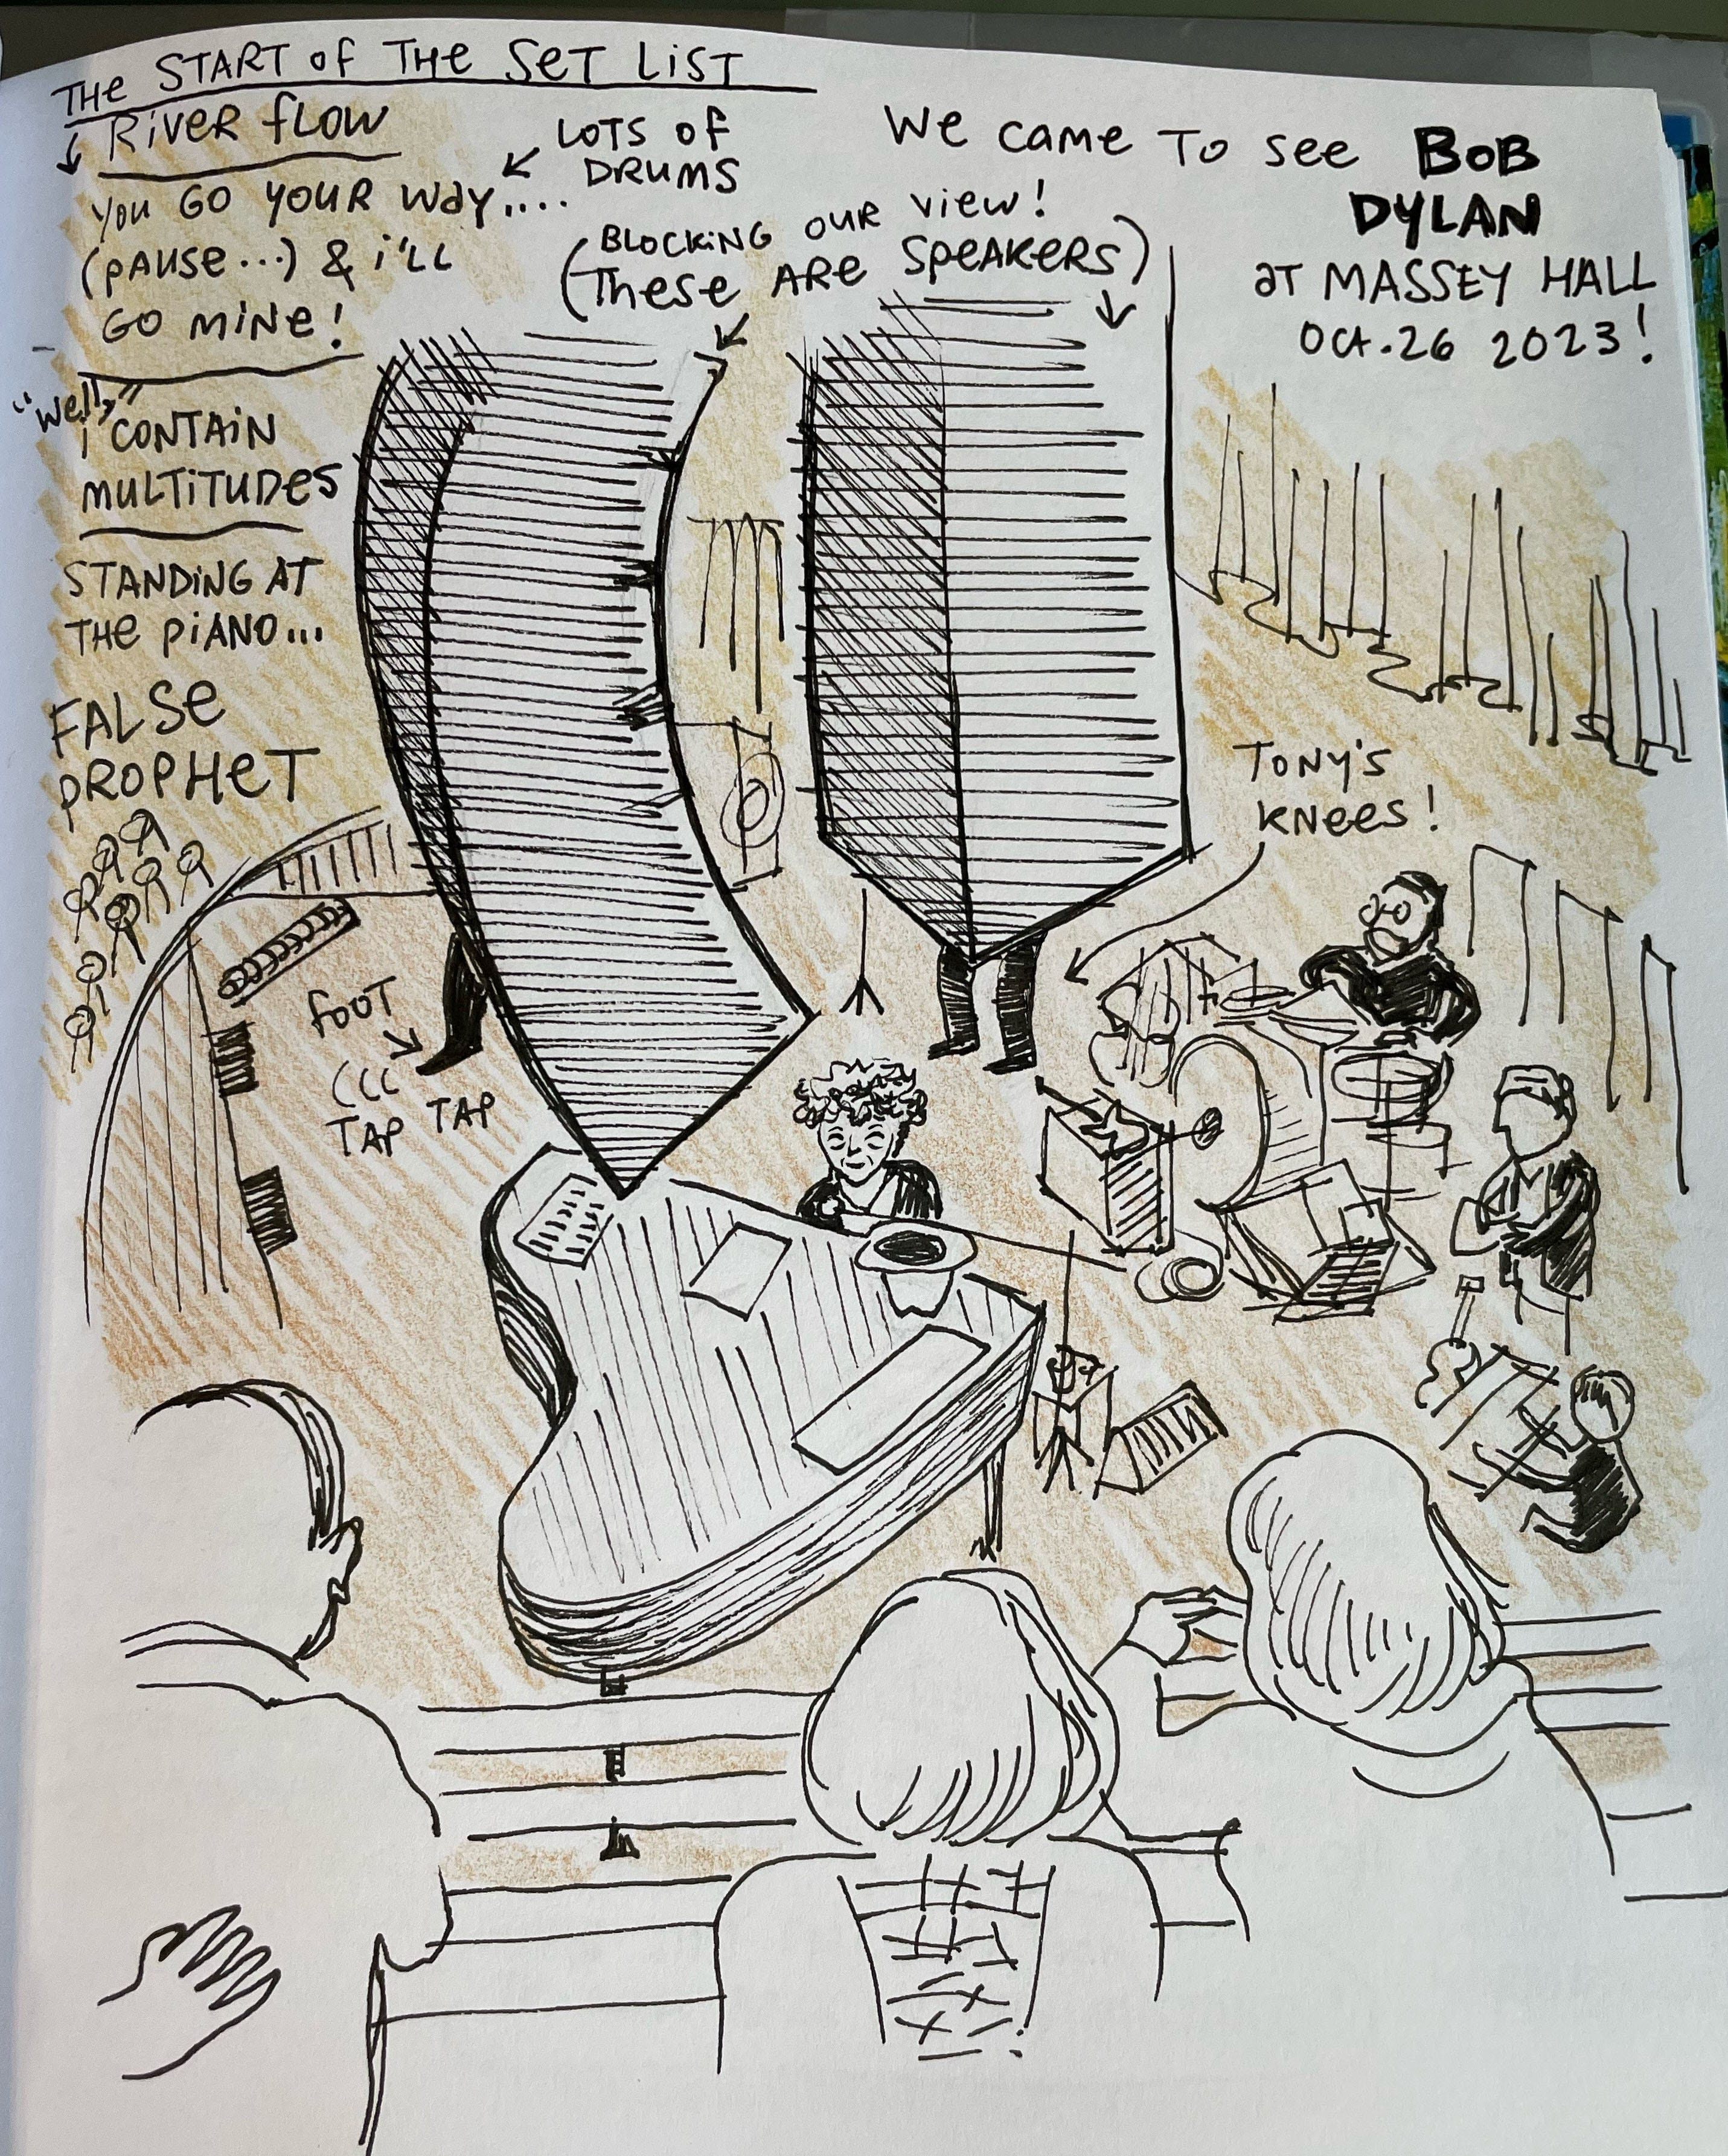 THE START OF THE SET LIST
RIVER FLOW
YOU GO YOUR WAY....
(PAUSE...) & I'LL
GO MINE!
LOTS OF
DRUMS
"Well,"
I CONTAIN
MULTITUDES
STANDING AT
THE PIANO...
FALSE
PROPHET
(BLOCKING OUR VIEW!
THESE ARE SPEAKERS)
WE CAME TO SEE BOB
DYLAN
AT MASSEY HALL
OCT.26 2023!
TONY'S
KNEES!
FOOT
TAP TAP